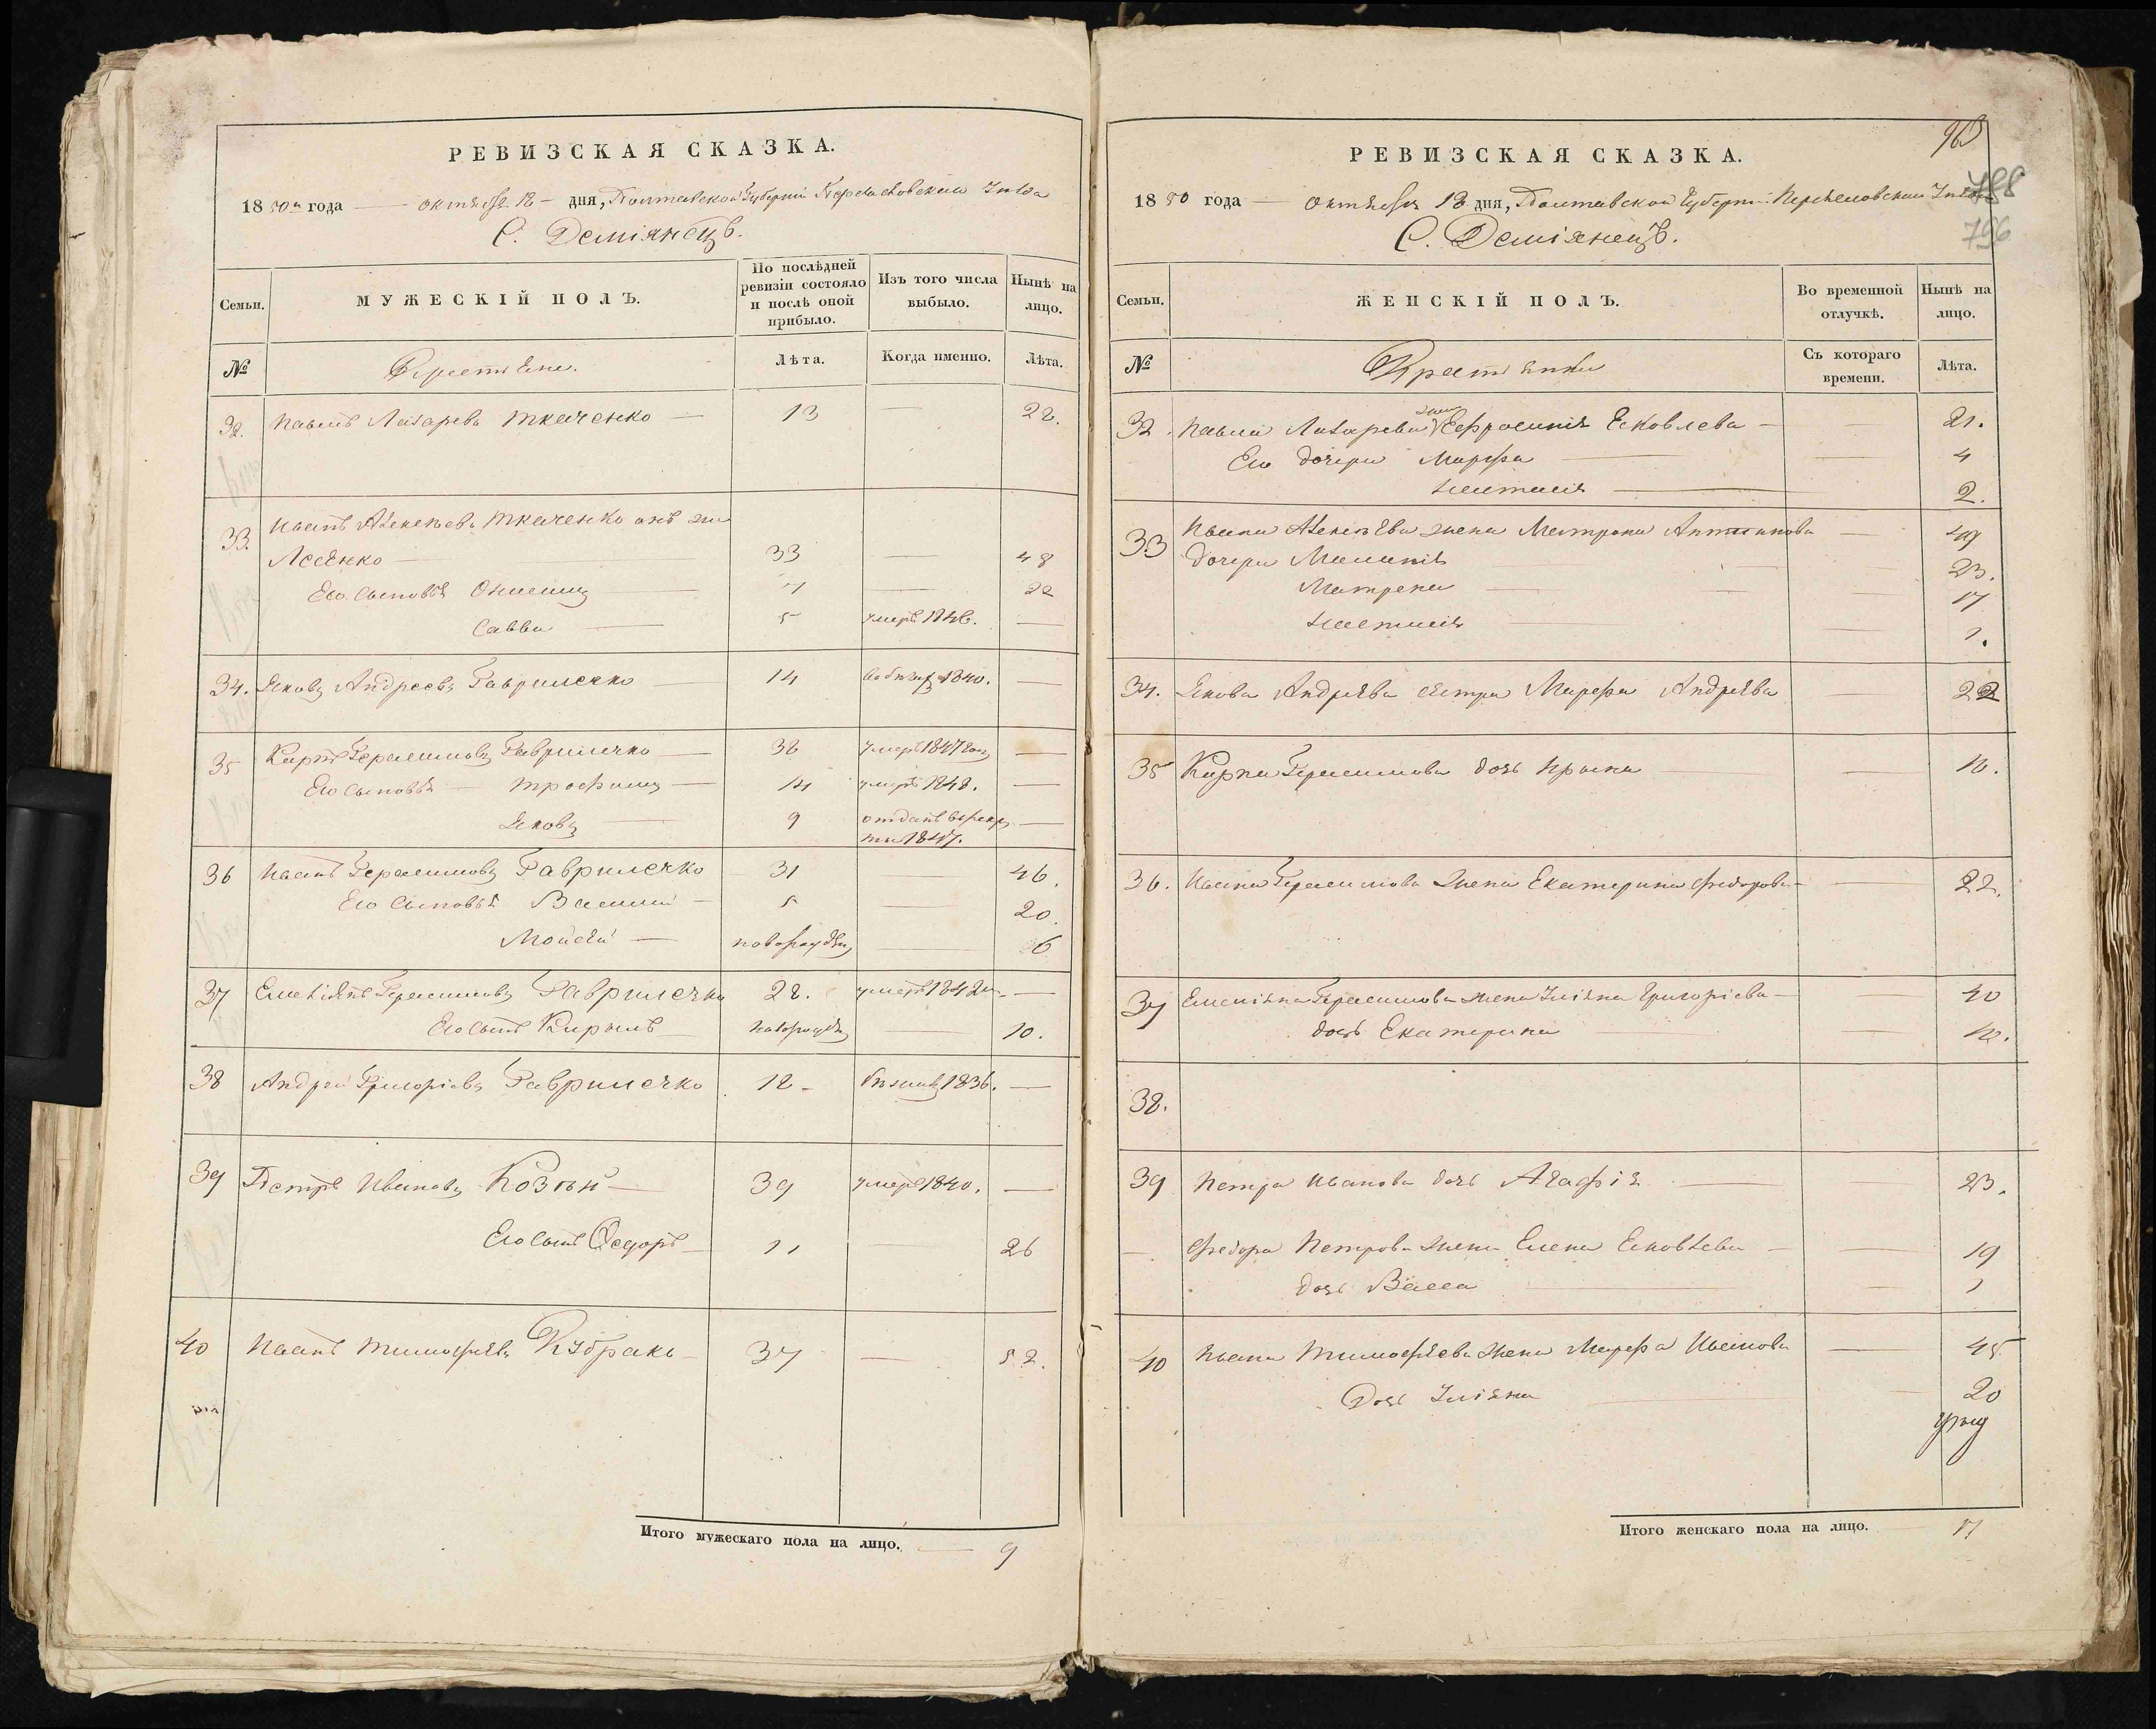 РЕВИЗСКАЯ СКАЗКА.
1850го года — октября 18 — дня, Полтавской Губерніи Переяславскаго Уѣзда
С. Деміянецъ.
Семьи. МУЖЕСКІЙ ПОЛЪ. По послѣдней ревизіи состояло и послѣ оной прибыло. Изъ того числа выбыло. Нынѣ на лицо.
№ Крестьяне. Лѣта. Когда именно. Лѣта.
32. Павелъ Лазаревъ Ткаченко — 13 — 28.
33. Иванъ Алексѣевъ Ткаченко онъ же
Лесенко — 33 — 48
Его сыновья Онисимъ — 7 — 22
Савва — 5 умеръ 1846. —
34. Яковъ Андреевъ Гавриленко — 14 1840. —
35 Карпъ Герасимовъ Гавриленко — 38 умеръ 1847 —
Его сыновья — Трофимъ — 14 умеръ 1848. —
Яковъ — 9 отданъ въ рекру —
ты 1847.
36 Иванъ Герасимовъ Гавриленко 31 — 46.
Его сыновья Василій — 5 — 20.
Мойсей — новорожден — 6
37 Емеліянъ Герасимовъ Гавриленко 28. умеръ 1842 —
Его сынъ Кирилъ новорожден 10.
38 Андрей Григоріевъ Гавриленко 12 — 1836. —
39 Петръ Ивановъ Козѣй — 39 умеръ 1840. —
Его сынъ Федоръ — 11 26
40 Иванъ Тимофѣевъ Кубракъ — 37 — 52.
Итого мужескаго пола на лицо. — 9
963
788
796
РЕВИЗСКАЯ СКАЗКА.
1850 года — октября 18 дня, Полтавской Губерніи Переяславскаго Уѣзда
С. Деміянецъ.
Семьи. ЖЕНСКІЙ ПОЛЪ. Во временной отлучкѣ. Нынѣ на лицо.
№ Крестьянки Съ котораго времени. Лѣта.
32. Павла Лазарева жена Ефросинія Яковлева — — 21.
Его дочери Марфа — — 4
Настасія — — 2.
33 Ивана Алексѣева жена Матрона — 49
дочери Меланія — 23.
Матрена — — 17
Настасія — — 1.
34. Якова Андрѣева сестра Марфа Андрѣева — 22
35 Карпа Герасимова дочь Ириска — 10.
36. Ивана Герасимова жена Екатерина Федорова — — 22.
37 Емеліяна Герасимова жена Уліяна Григоріева — — 40
дочь Екатерина — —
38.
39 Петра Иванова дочь Агафія — — 23.
— Федора Петрова жена Елена Яковлева — — 19
дочь Васса — — 1
40 Ивана Тимофѣева жена Марфа Иванова — 45
Дочь Уліяна — 20
Итого женскаго пола на лицо. 17